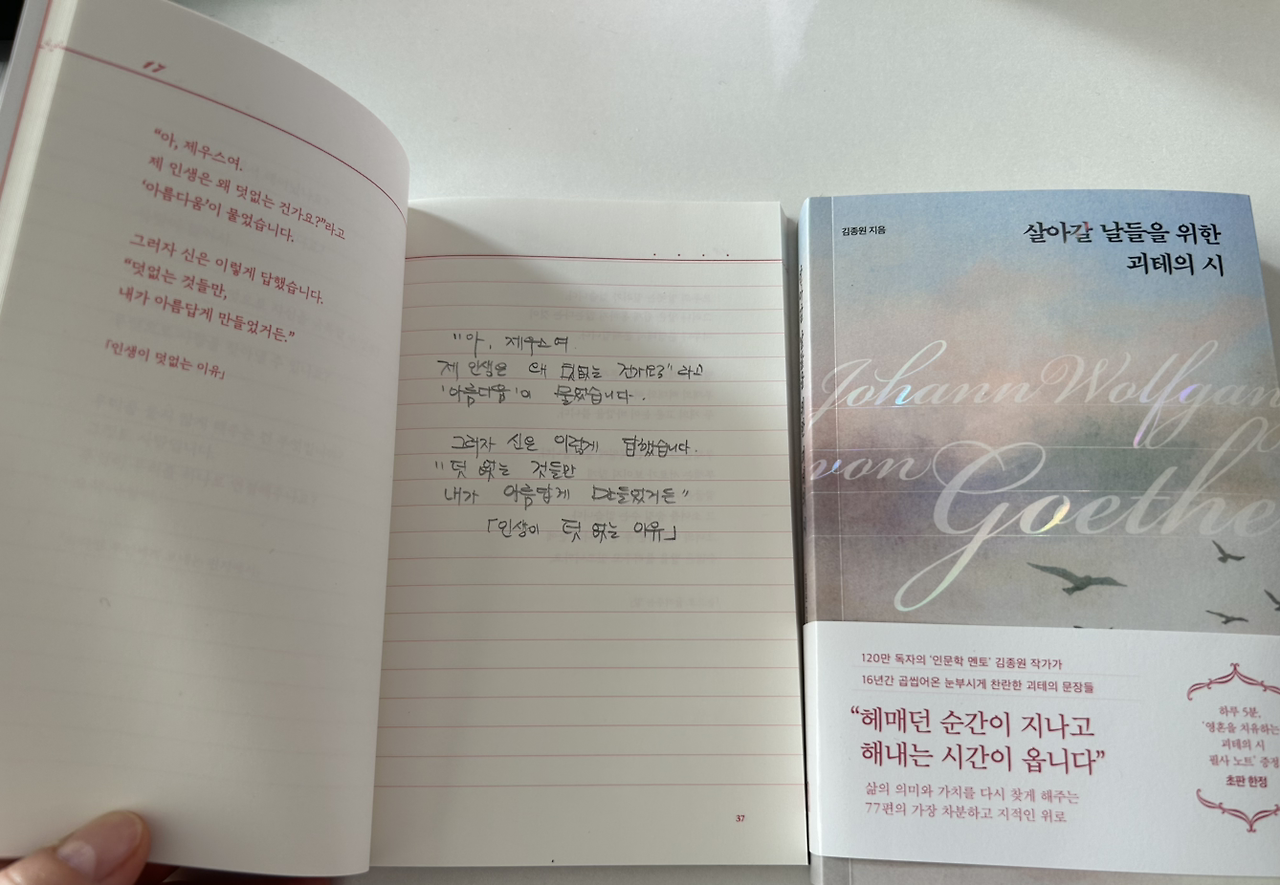 17
“아, 제우스여.
제 인생은 왜 덧없는 건가요?”라고
‘아름다움’이 물었습니다.
그러자 신은 이렇게 답했습니다.
“덧없는 것들만,
내가 아름답게 만들었거든.”
「인생이 덧없는 이유」
"아, 제우스여
제 인생은 왜 덧없는 건가요?"라고
'아름다움'이 물었습니다.
그러자 신은 이렇게 답했습니다.
"덧 없는 것들만
내가 아름답게 만들었거든"
「인생이 덧 없는 이유」
37
김종원 지음
살아갈 날들을 위한
괴테의 시
Johann Wolfgan
von
Goethe
120만 독자의 ‘인문학 멘토’ 김종원 작가가
16년간 곱씹어온 눈부시게 찬란한 괴테의 문장들
“헤매던 순간이 지나고
해내는 시간이 옵니다”
삶의 의미와 가치를 다시 찾게 해주는
77편의 가장 차분하고 지적인 위로
하루 5분,
‘영혼을 치유하는
괴테의 시
필사 노트’ 증정
초판 한정